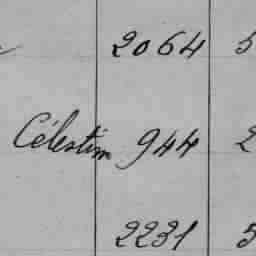 2064 5
Célestin 944 2
2231 5